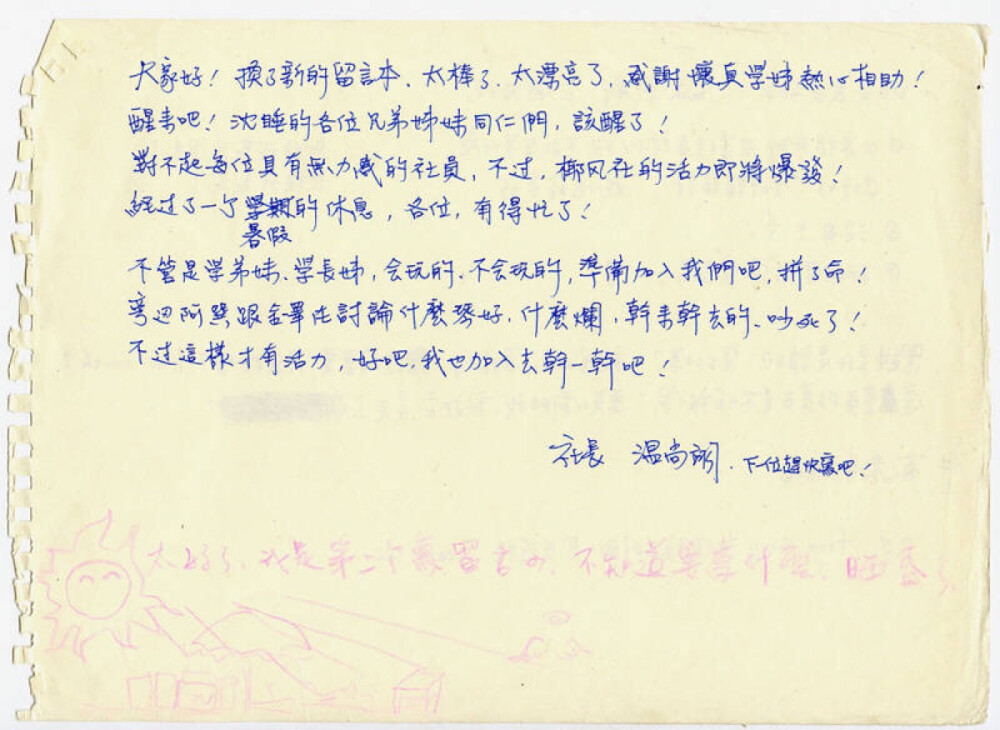 P.1
大家好！換了新的留言本、太棒了、太漂亮了、感謝懷真学姊熱心相助！
醒来吧！沈睡的各位兄弟姊妹同仁們，該醒了！
對不起每位具有無力感的社員，不过，椰风社的活力即將爆發！
經过了一个学期的休息，各位，有得忙了！
暑假
不管是学弟妹、学長姊，会玩的、不会玩的，準備加入我們吧，拼了命！
旁边阿 跟 討論什麼琴好，什麼爛，幹来幹去的、吵死了！
不过這樣才有活力，好吧，我也加入去幹一幹吧！
社長 温尚朗．下一位趕快寫吧！
太好了、我是第二个寫留言的、不知道要寫什麼、晒昏了、